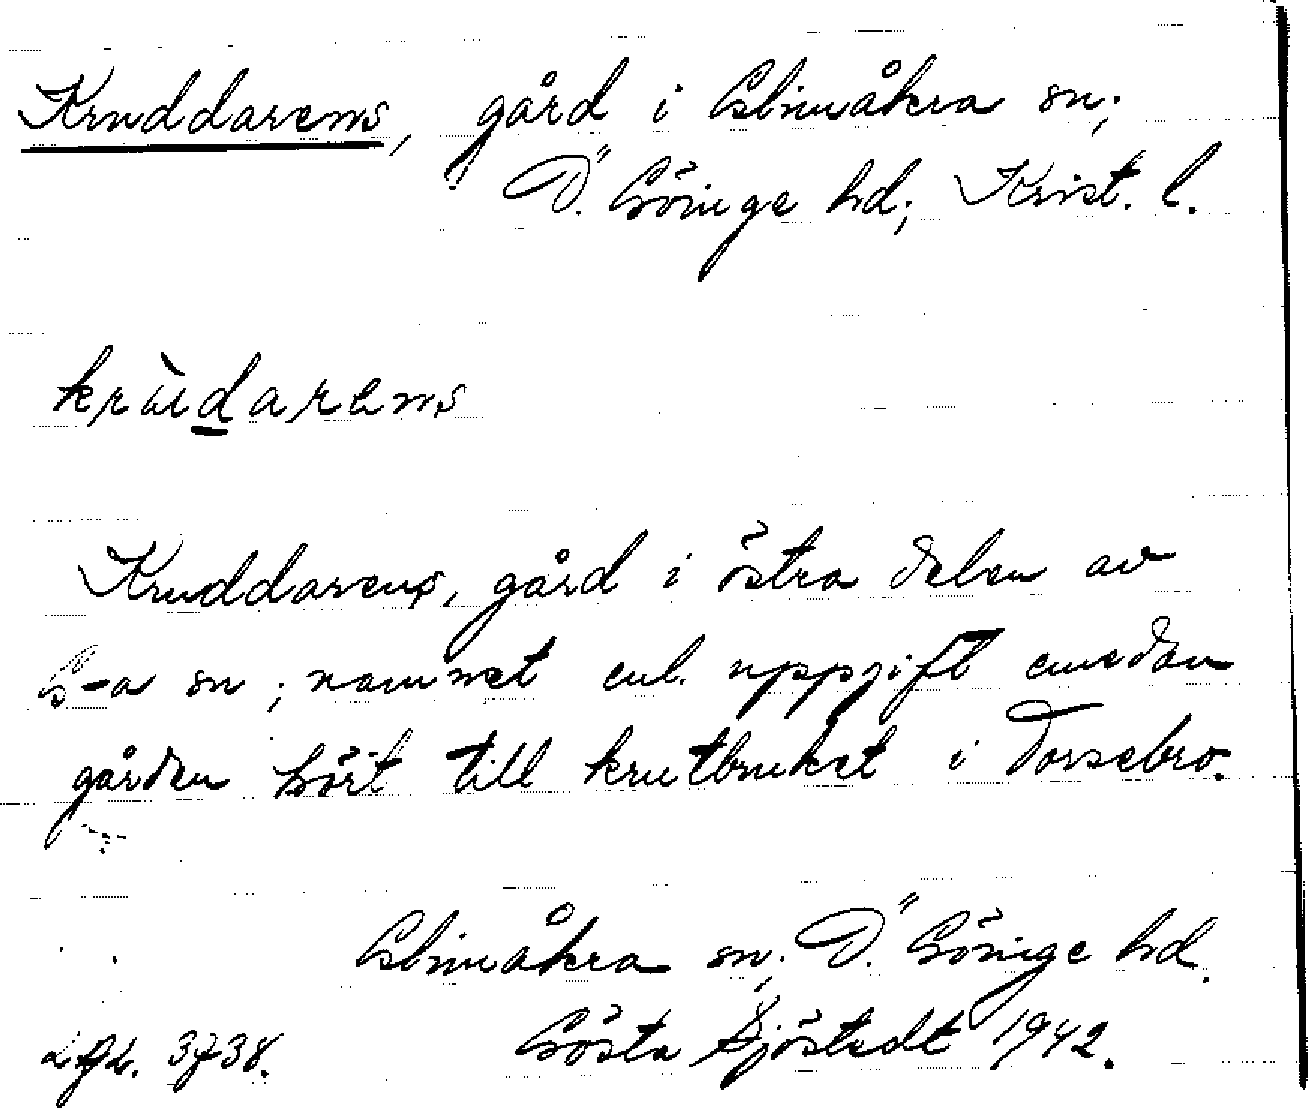 Kruddarems, gård i Glimåkra sn;
Ö. Göinge hd; Krist. l.
krùdarems
Kruddarens, gård i östra delen av
G-a sn; namnet enl. uppgift emedan
gården hört till krutbruket i Torsebro.
Glimåkra sn; Ö. Göinge hd.
Gösta Sjöstedt 1942.